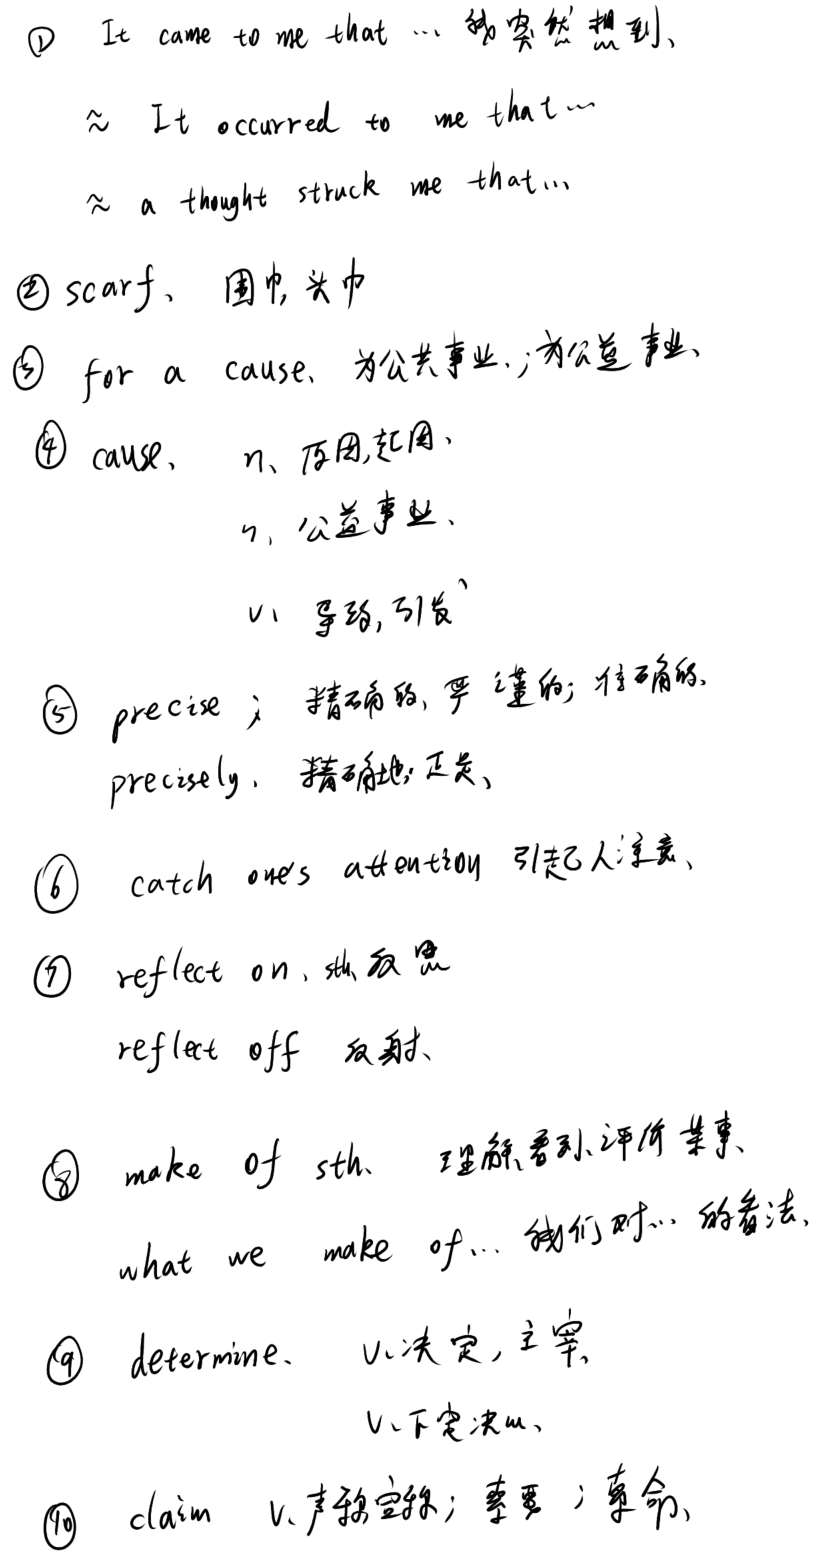 ① It came to me that … 我突然想到、
≈ It occurred to me that …
≈ a thought struck me that …
② scarf、 围巾, 头巾
③ for a cause、 为公共事业、; 为公益事业、
④ cause、 n、原因, 起因、
n、公益事业、
v、导致, 引发、
⑤ precise ; 精确的、严谨的; 准确的、
precisely、 精确地; 正是、
⑥ catch one's attention 引起人注意、
⑦ reflect on、sth、反思
reflect off 反射、
⑧ make of sth、 理解、看到、评价某事、
what we make of … 我们对 … 的看法、
⑨ determine、 v、决定, 主宰、
v、下定决心、
⑩ claim v、声称宣称; 索要; 革命、